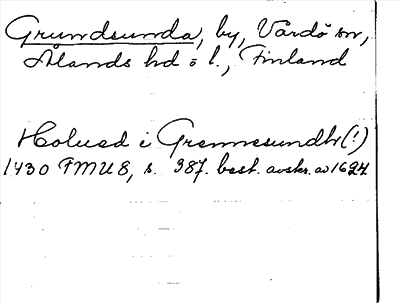 Grundsunda, by, Vårdö sn,
Ålands hd o l., Finland
Holused i Grennesundh (!)
1430 FMU 8, s. 387. best. avskr. av 1624